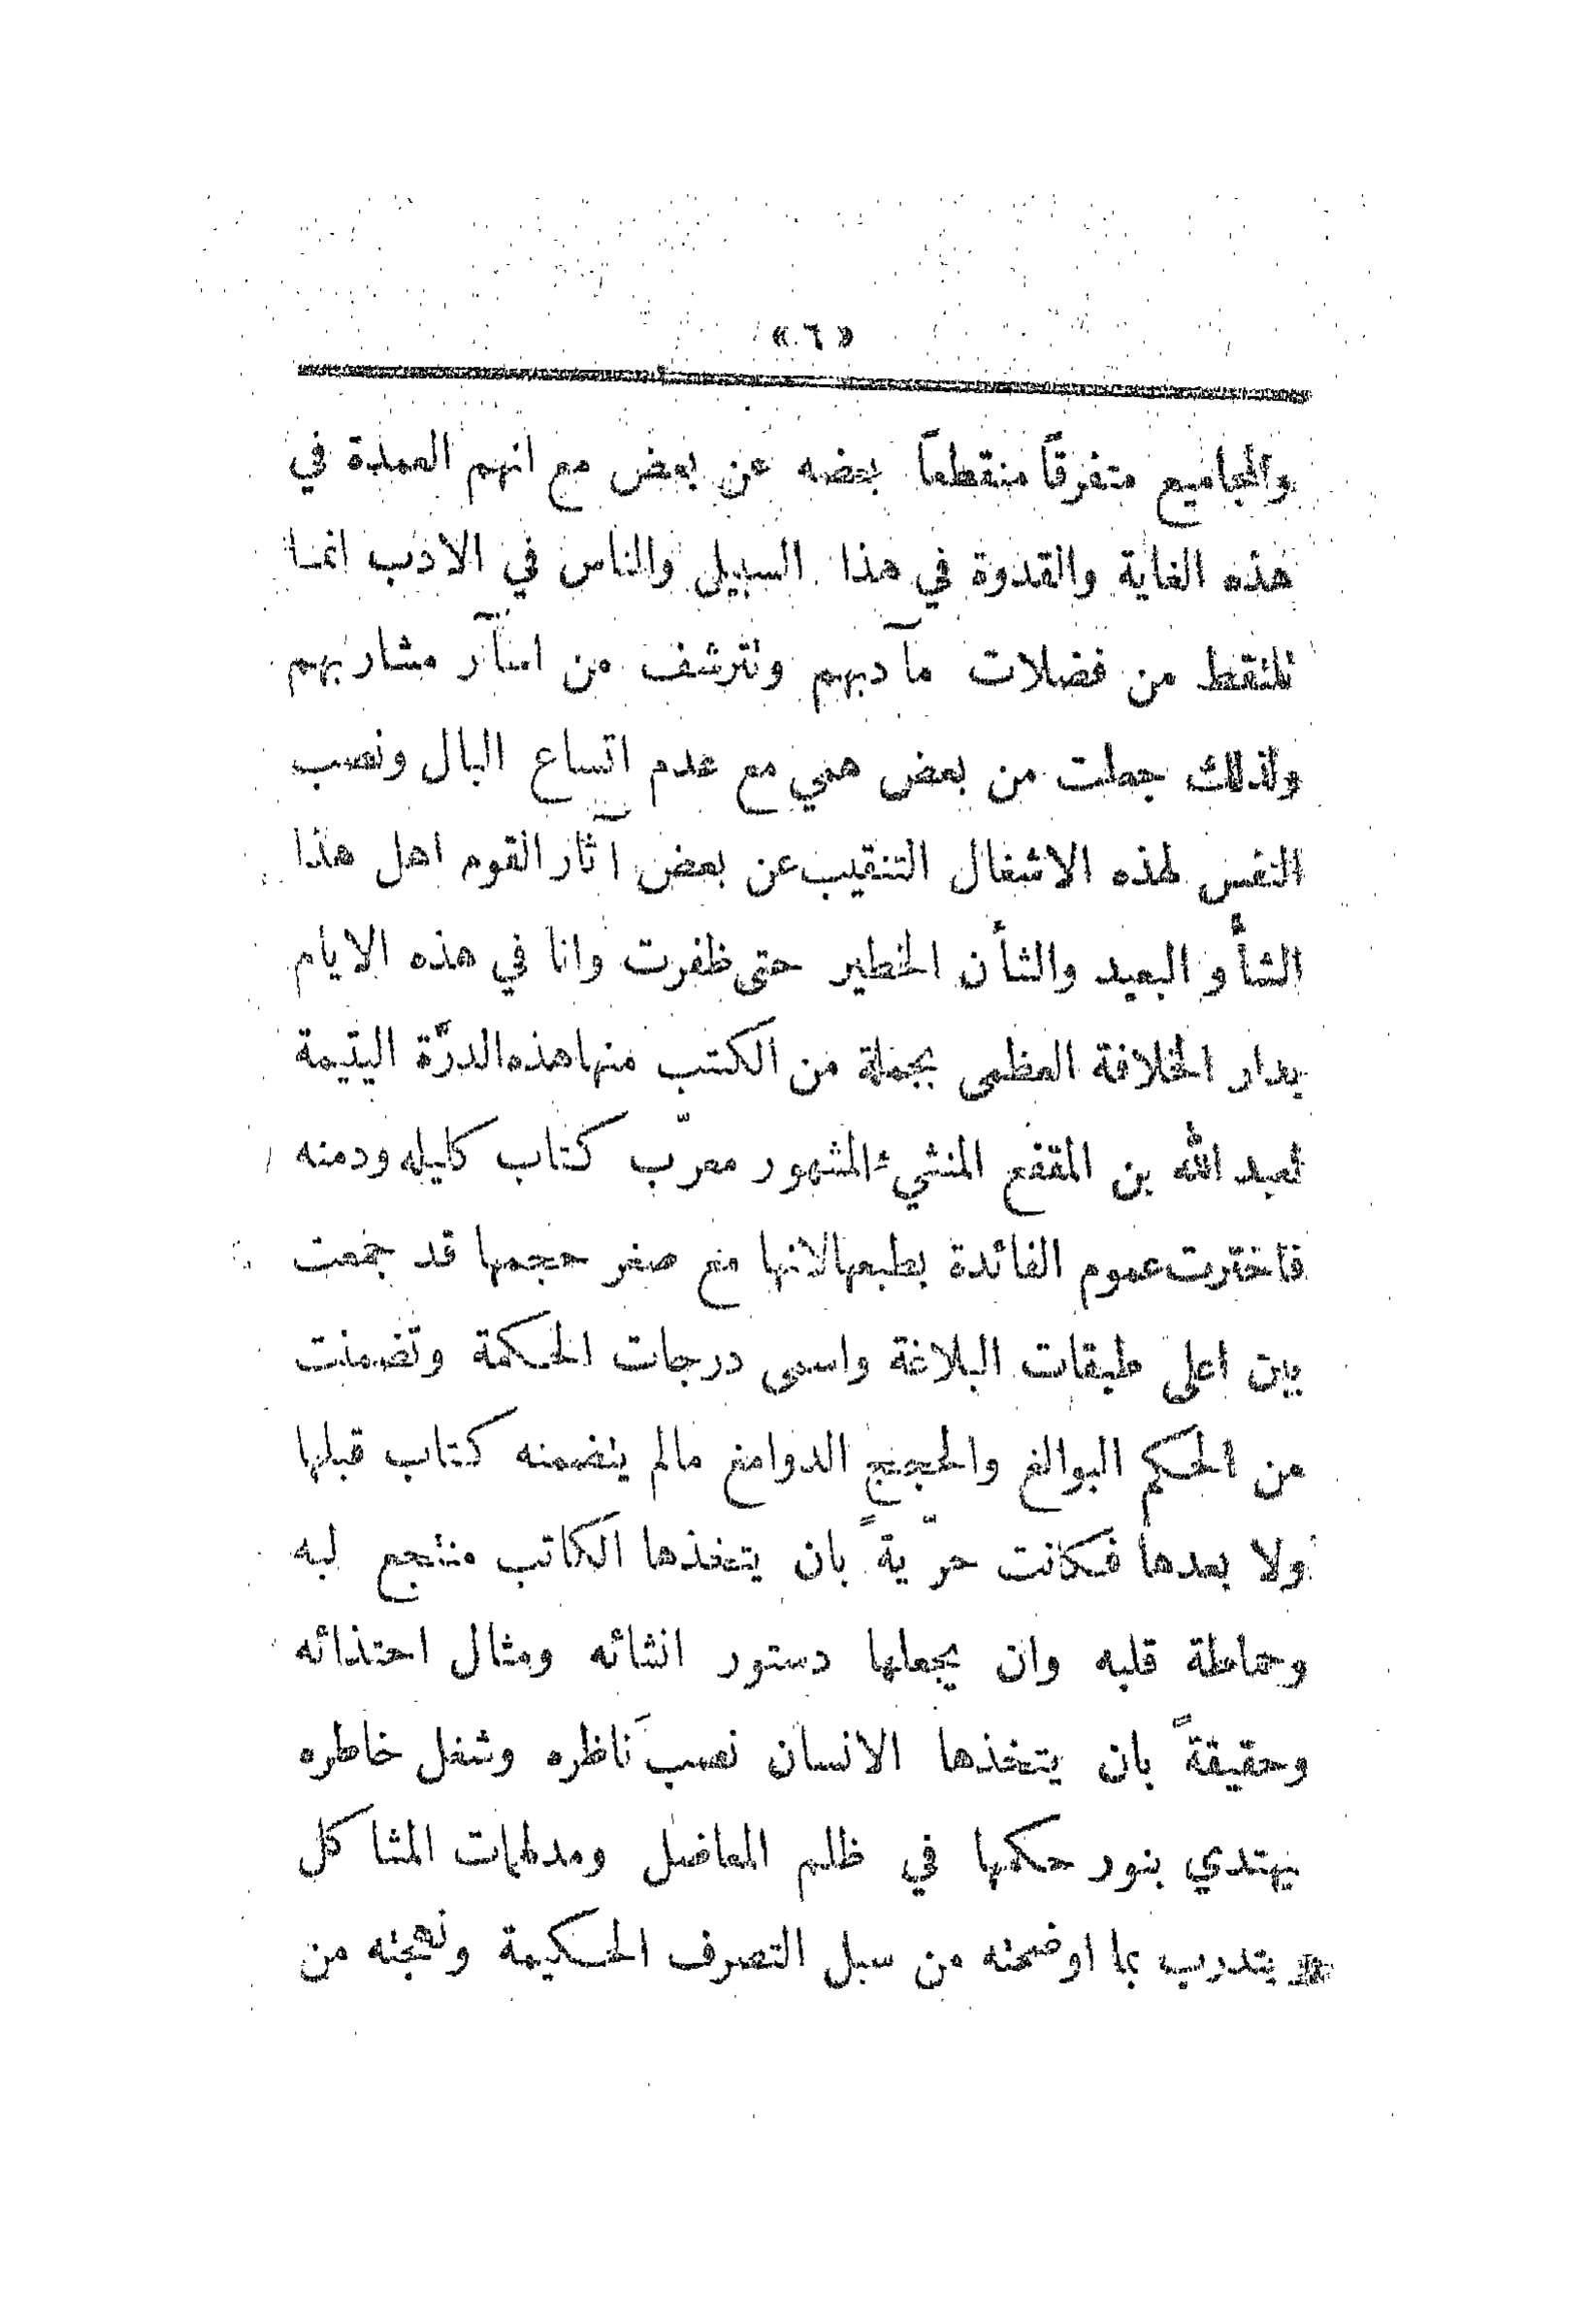 «٦»
والمجاميع متفرقاً منقطعاً بعضه عن بعض مع انهم العمدة في
هذه الغاية والقدوة في هذا السبيل والناس في الادب انما
تلتقط من فضلات مآدبهم وتترشف من اسآر مشاربهم
ولذلك جعلت من بعض همي مع عدم اتساع البال ونصب
النفس لهذه الاشغال التنقيب عن بعض آثار القوم اهل هذا
الشأو البعيد والشأن الخطير حتى ظفرت وانا في هذه الايام
بدار الخلافة العظمى بجملة من الكتب منها هذه الدرّة اليتيمة
لعبد الله بن المقفع المنشيء المشهور معرّب كتاب كليله ودمنه
فاخترت عموم الفائدة بطبعها لانها مع صغر حجمها قد جمعت
بين اعلى طبقات البلاغة واسمى درجات الحكمة وتضمنت
من الحكم البوالغ والحجج الدوامغ مالم يتضمنه كتاب قبلها
ولا بعدها فكانت حرّيةً بان يتخذها الكاتب منتجع لبه
وحماطة قلبه وان يجعلها دستور انشائه ومثال احتذائه
وحقيقةً بان يتخذها الانسان نصبَ ناظره وشغل خاطره
يهتدي بنور حكمها في ظلم المعاضل ومدلهمات المشاكل
يتدرب بما اوضحته من سبل التصرف الحكيمة ونهجته من